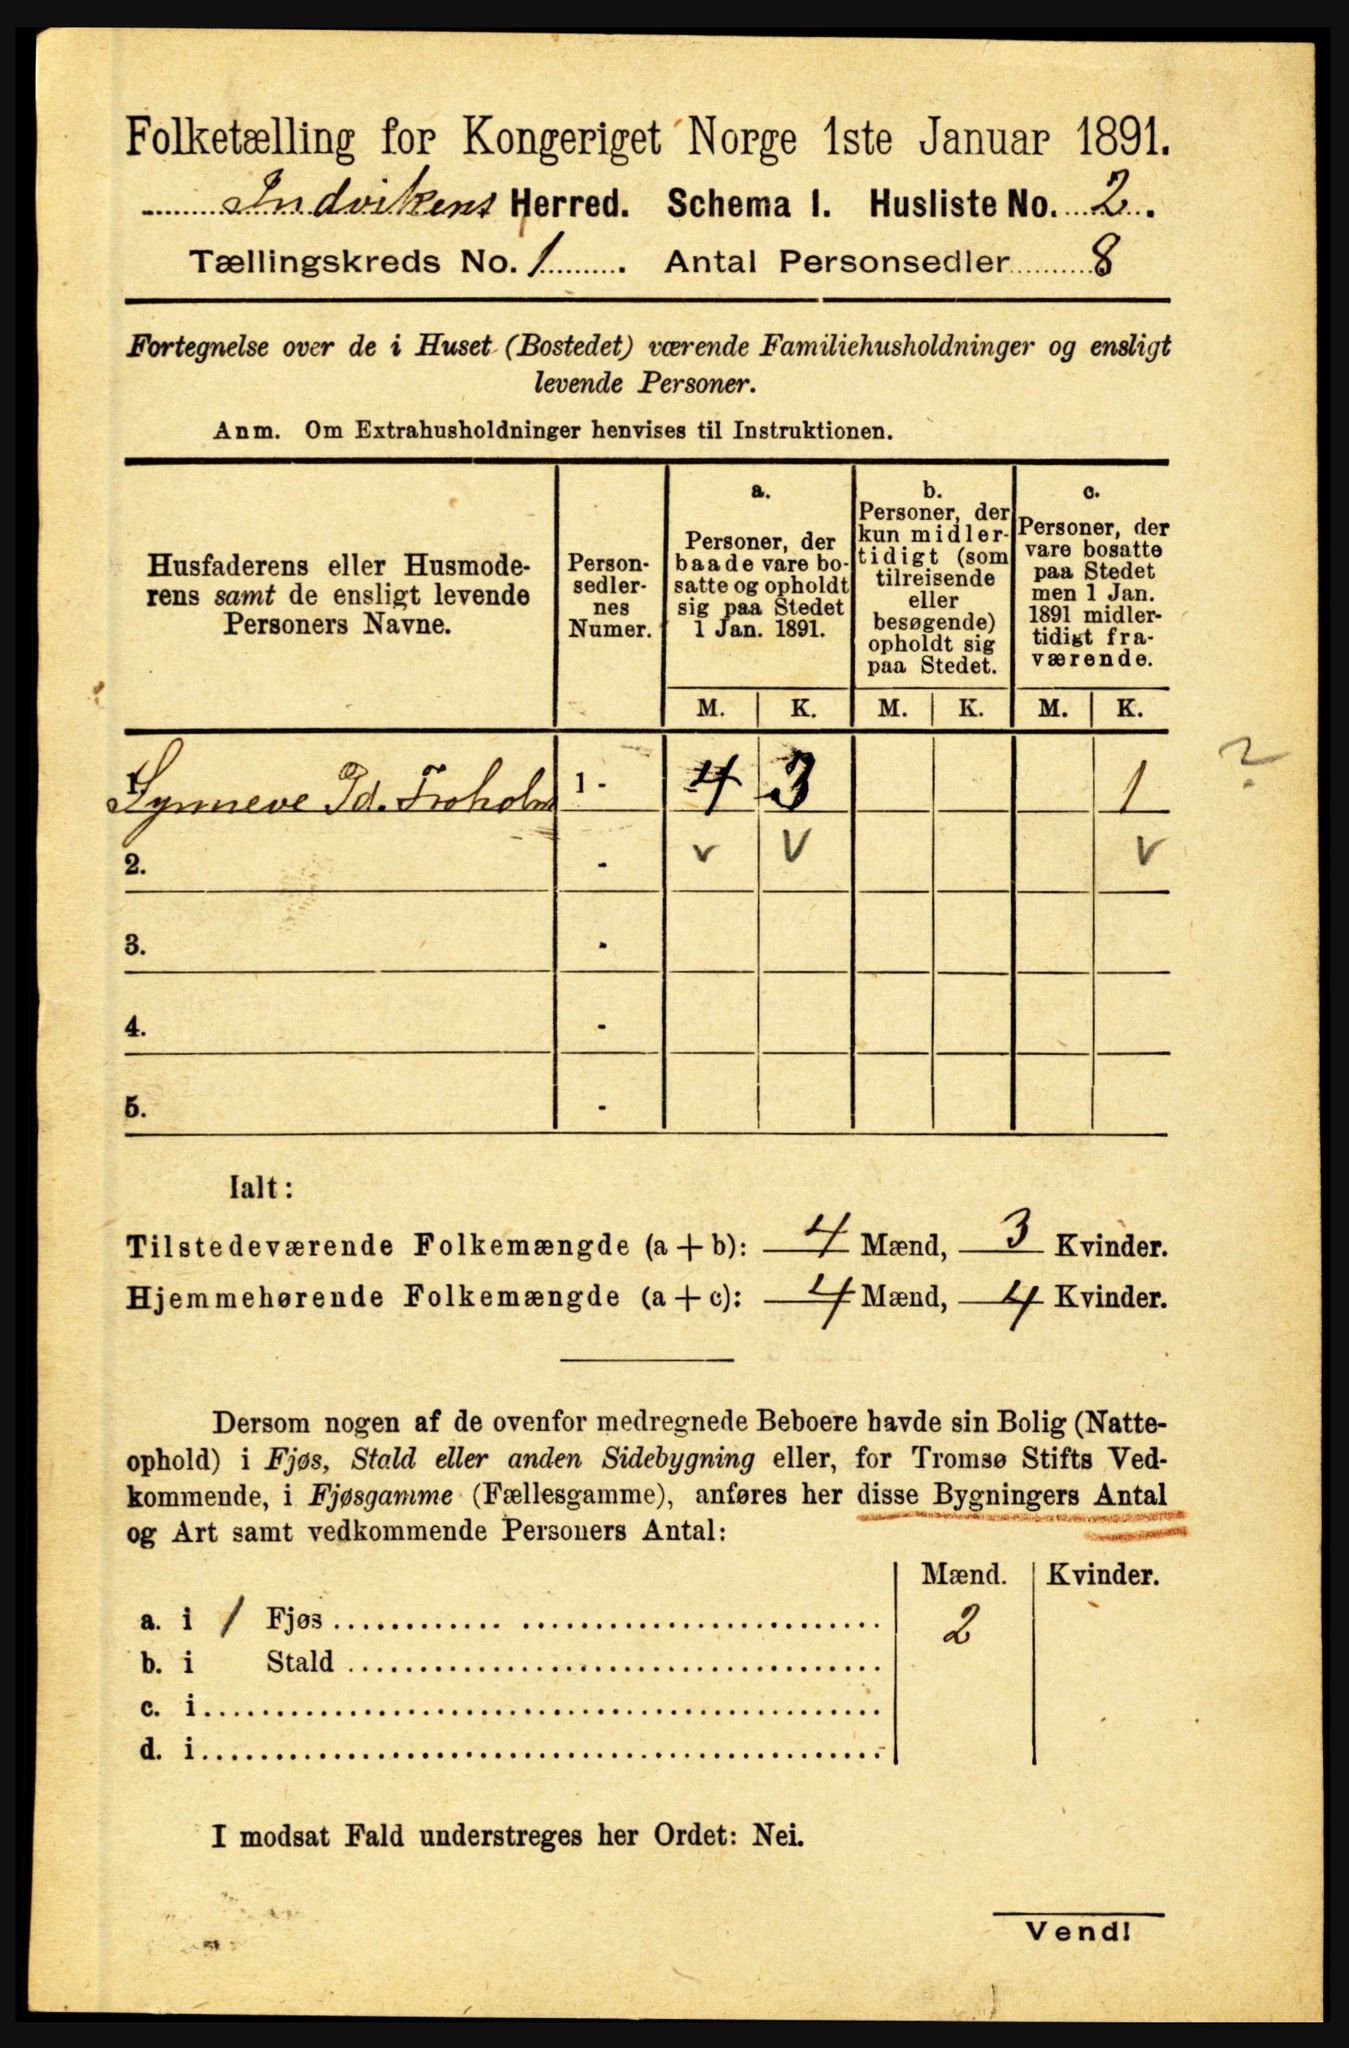 Folketælling for Kongeriget Norge 1ste Januar 1891.
Indvikens Herred. Schema I. Husliste No. 2.
Tællingskreds No. 1. Antal Personsedler 8
Fortegnelse over de i Huset (Bostedet) værende Familiehusholdninger og ensligt
levende Personer.
Anm. Om Extrahusholdninger henvises til Instruktionen.
Husfaderens eller Husmode-
rens samt de ensligt levende
Personers Navne.
Person-
sedler-
nes
Numer.
a.
Personer, der
baade vare bo-
satte og opholdt
sig paa Stedet
1 Jan. 1891.
b.
Personer, der
kun midler-
tidigt (som
tilreisende
eller
besøgende)
opholdt sig
paa Stedet.
c.
Personer, der
vare bosatte
paa Stedet
men 1 Jan.
1891 midler-
tidigt fra-
værende.
M. K. M. K. M. K.
1. Synneve Pd. Froholm 1 - 4 3 1 ?
2. - v v v
3. -
4. -
5. -
Ialt:
Tilstedeværende Folkemængde (a + b): 4 Mænd, 3 Kvinder.
Hjemmehørende Folkemængde (a + c): 4 Mænd, 4 Kvinder.
Dersom nogen af de ovenfor medregnede Beboere havde sin Bolig (Natte-
ophold) i Fjøs, Stald eller anden Sidebygning eller, for Tromsø Stifts Ved-
kommende, i Fjøsgamme (Fællesgamme), anføres her disse Bygningers Antal
og Art samt vedkommende Personers Antal:
Mænd. Kvinder.
a. i 1 Fjøs 2
b. i Stald
c. i
d. i
I modsat Fald understreges her Ordet: Nei.
Vend!